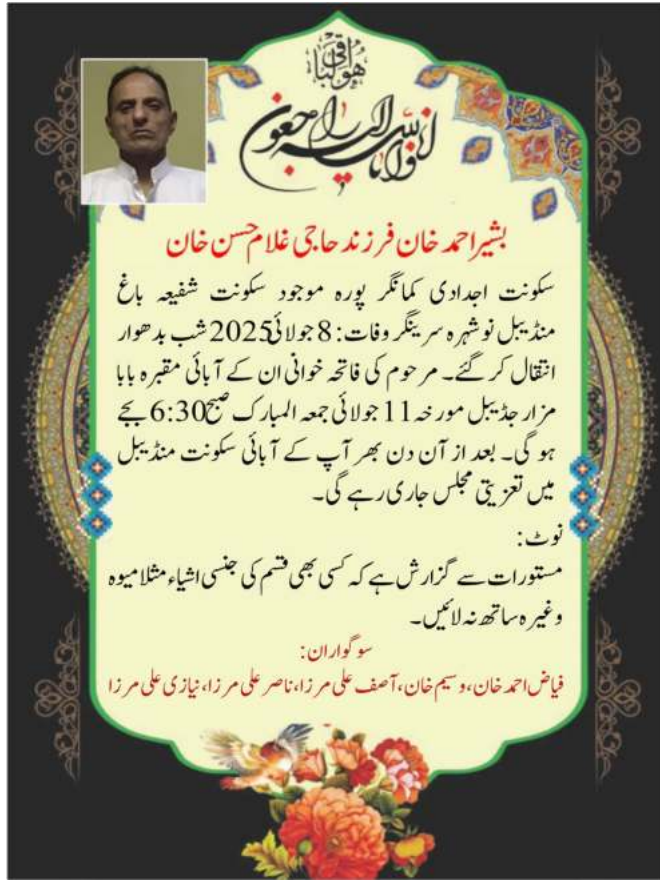 هو الباقی
انا لله وانا الیہ راجعون
بشیر احمد خان فرزند حاجی غلام حسن خان
سکونت اجدادی کمانگر پورہ موجود سکونت شفیعہ باغ
منڈیبل نوشہرہ سرینگر وفات: 8 جولائی 2025 شب بدھوار
انتقال کر گئے۔ مرحوم کی فاتحہ خوانی ان کے آبائی مقبرہ بابا
مزار جڈیبل مورخہ 11 جولائی جمعہ المبارک صبح 6:30 بجے
ہو گی۔ بعد از آن دن بھر آپ کے آبائی سکونت منڈیبل
میں تعزیتی مجلس جاری رہے گی۔
نوٹ:
مستورات سے گزارش ہے کہ کسی بھی قسم کی جنسی اشیاء مثلا میوہ
وغیرہ ساتھ نہ لائیں۔
سوگواران:
فیاض احمد خان، وسیم خان، آصف علی مرزا، ناصر علی مرزا، نیازی علی مرزا